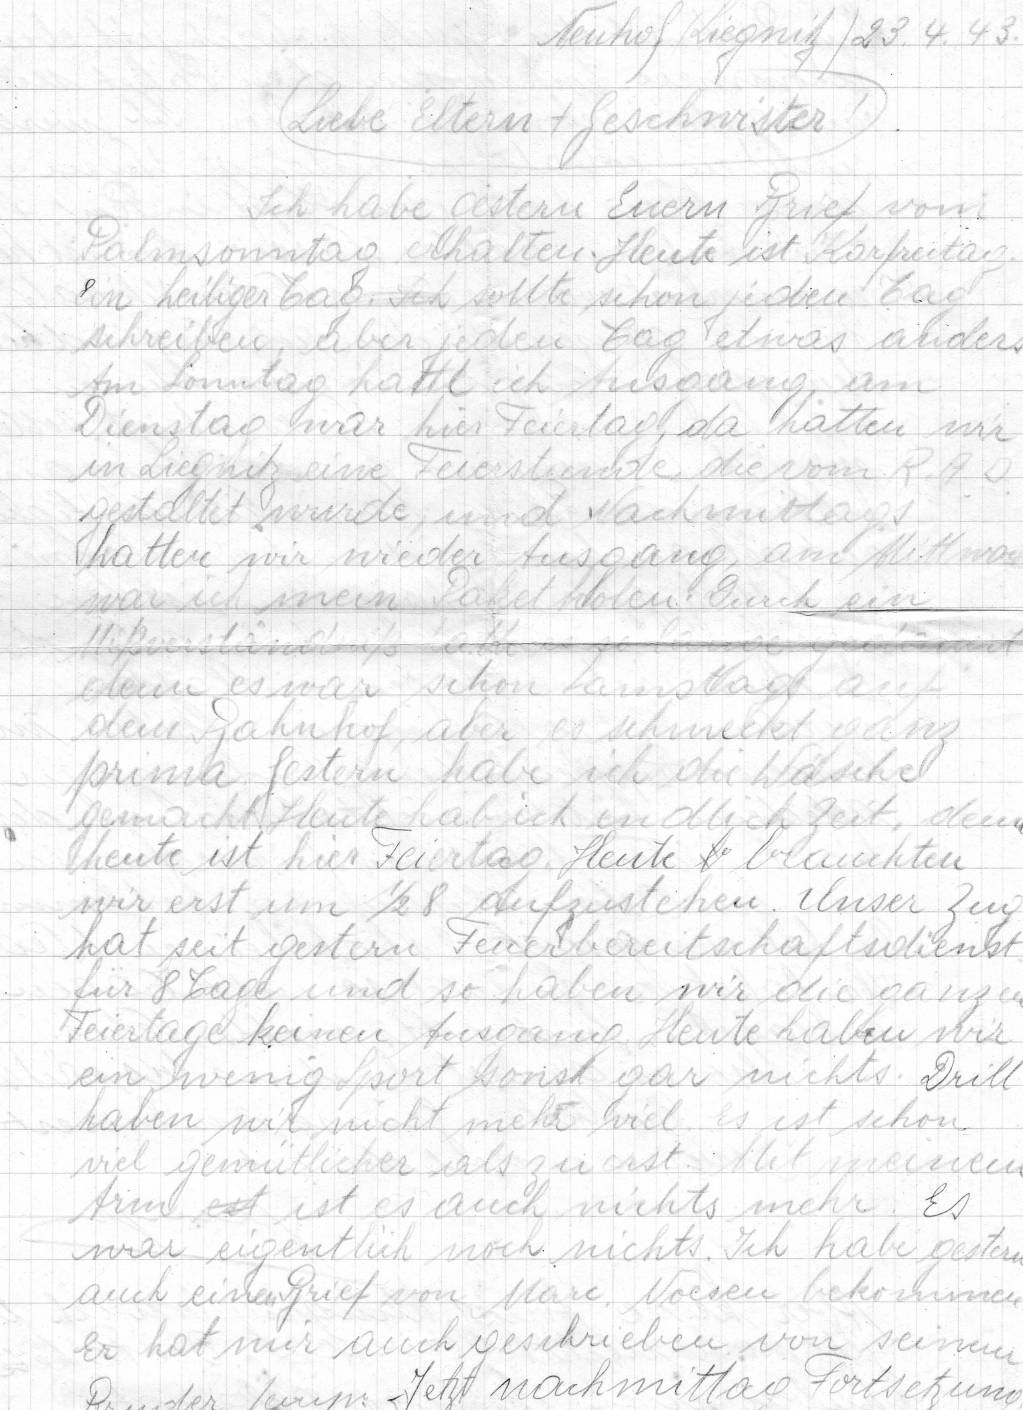 Neuhof Liegnitz / 23. 4. 43.
Liebe Eltern + Geschwister!
Ich habe Gestern Euern Brief vom
Palmsonntag erhalten. Heute ist Karfreitag.
ein heiliger Tag. Ich sollte schon jeden Tag
schreiben, aber jeden Tag etwas anders
Am Sonntag hatte ich Ausgang, am
Dienstag war hier Feiertag, da hatten wir
in Liegnitz eine Feierstunde, die vom R.A.D
gestaltet wurde, und Nachmittags
hatten wir wieder Ausgang, am Mittwoch
war ich mein Paket holen. Durch ein
Mißverständniß hatte es so lange
denn es war schon Samstag auf
dem Bahnhof, aber es schmeckt ganz
prima. Gestern habe ich die Wäsche
gemacht. Heute hab ich endlich Zeit, denn
heute ist hier Feiertag. Heute brauchten
wir erst um 1/2 8 aufzustehen. Unser Zug
hat seit gestern Feuerbereitschaftsdienst
für 8 Tage und so haben wir die ganzen
Feiertage keinen Ausgang. Heute haben wir
ein wenig Sport sonst gar nichts. Drill
haben wir nicht mehr viel. Es ist schon
viel gemütlicher als zu erst. Mit meinem
Arm ist es auch nichts mehr. Es
war eigentlich noch nichts. Ich habe gestern
auch einen Brief von Marc. Noesen bekommen
Er hat mir auch geschrieben von seinem
Bruder Jetzt nachmittag Fortsetzung